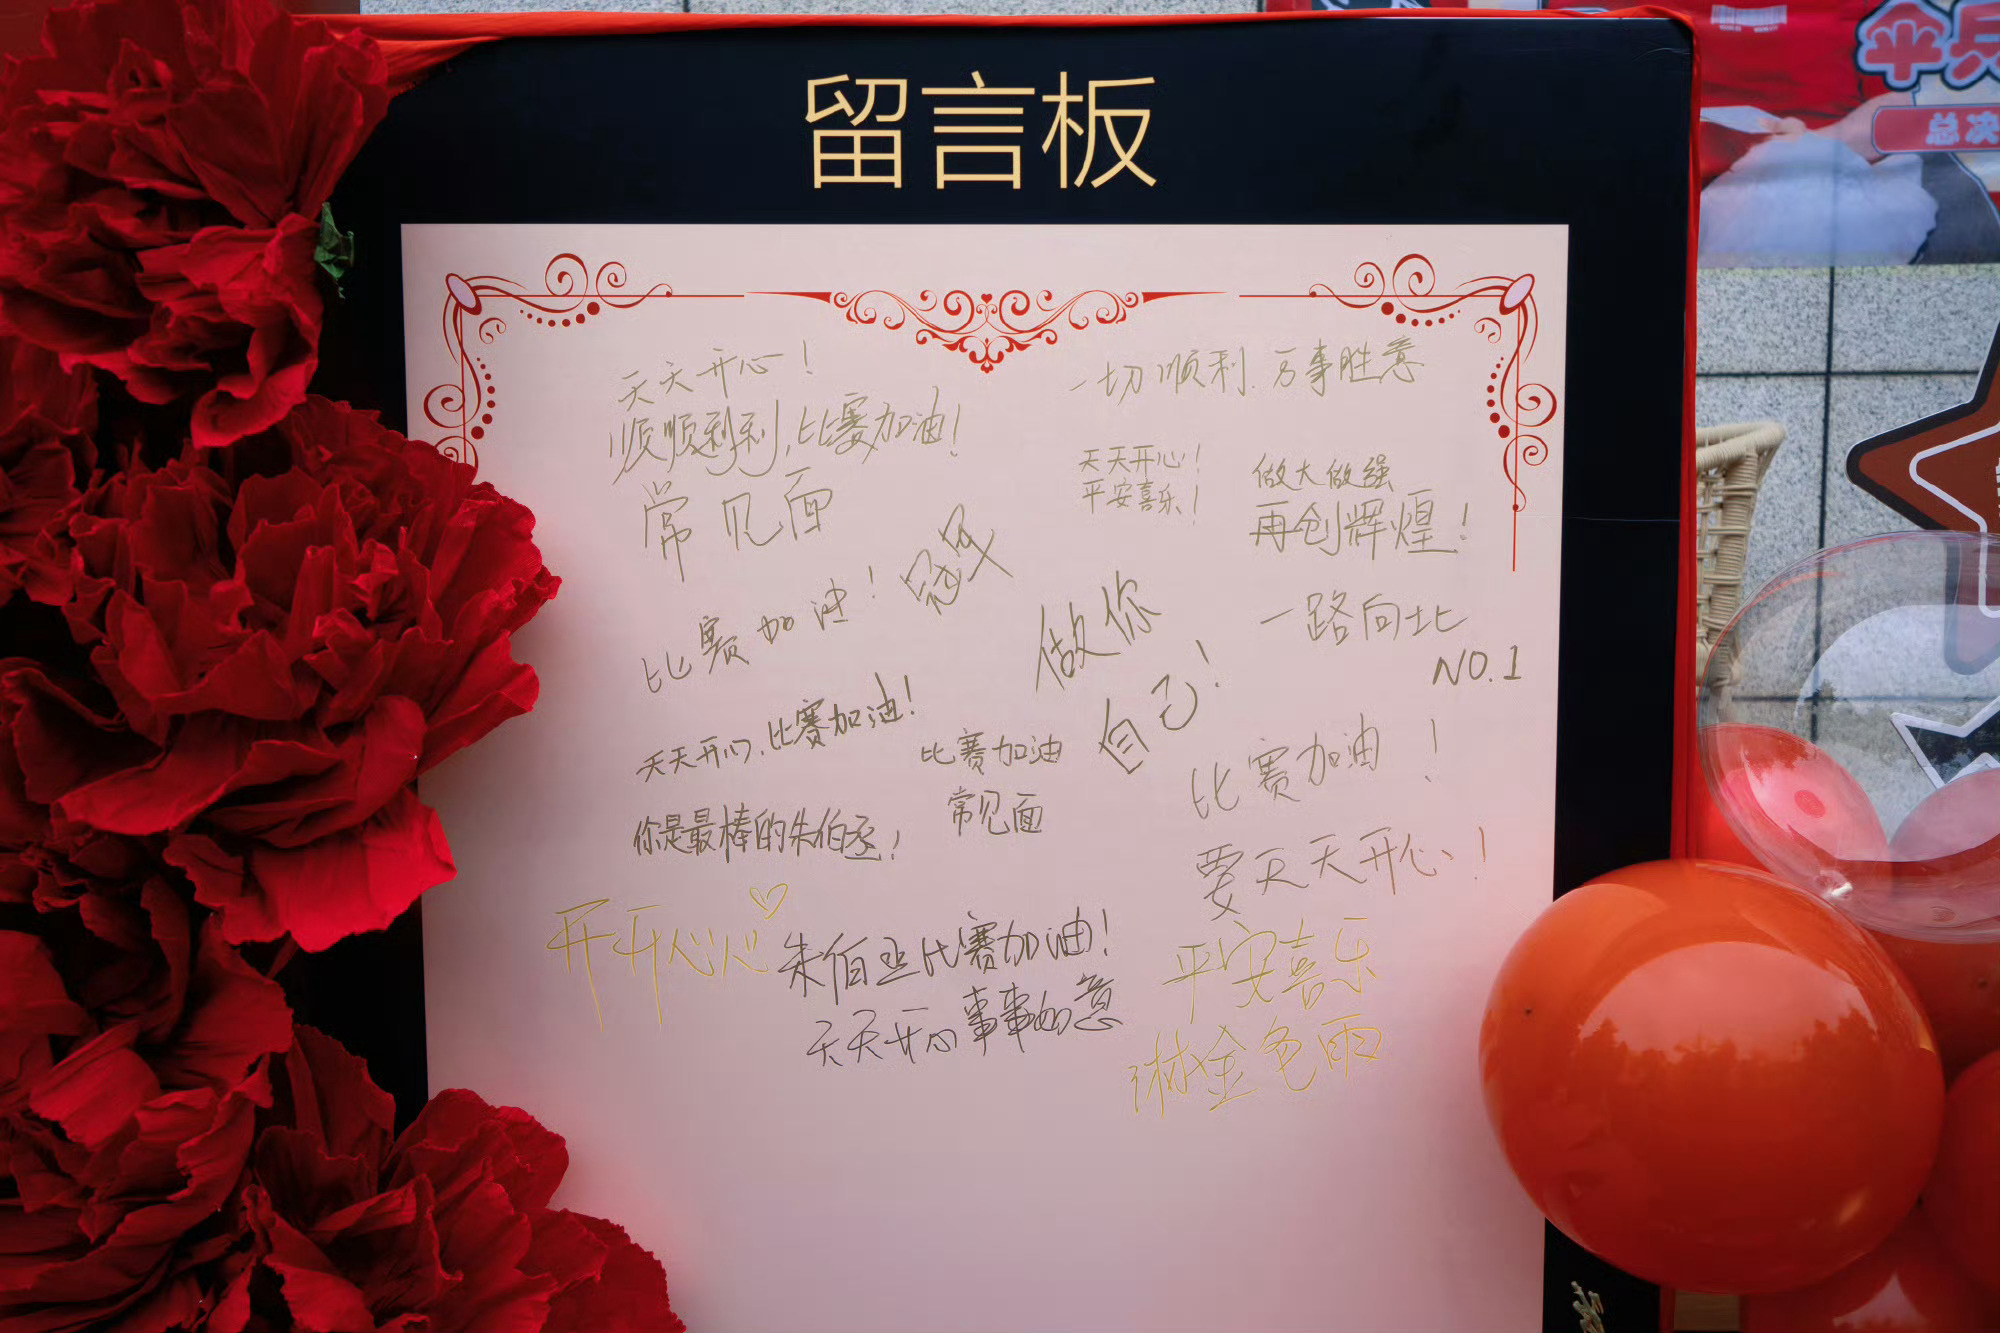 留言板
天天开心！
顺顺利利，比赛加油！
常见面
一切顺利，万事胜意
天天开心！
平安喜乐！
做大做强
再创辉煌！
比赛加油！
冠
做你
自己！
一路向北
NO.1
天天开心，比赛加油！
你是最棒的朱伯丞！
比赛加油
常见面
比赛加油！
要天天开心！
开开心心
朱佰丞比赛加油！
天天开心 事事如意
平安喜乐
淋金色雨
伞兵
总决